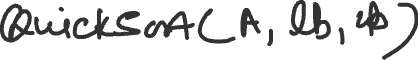 QuickSort(A, lb, ub)